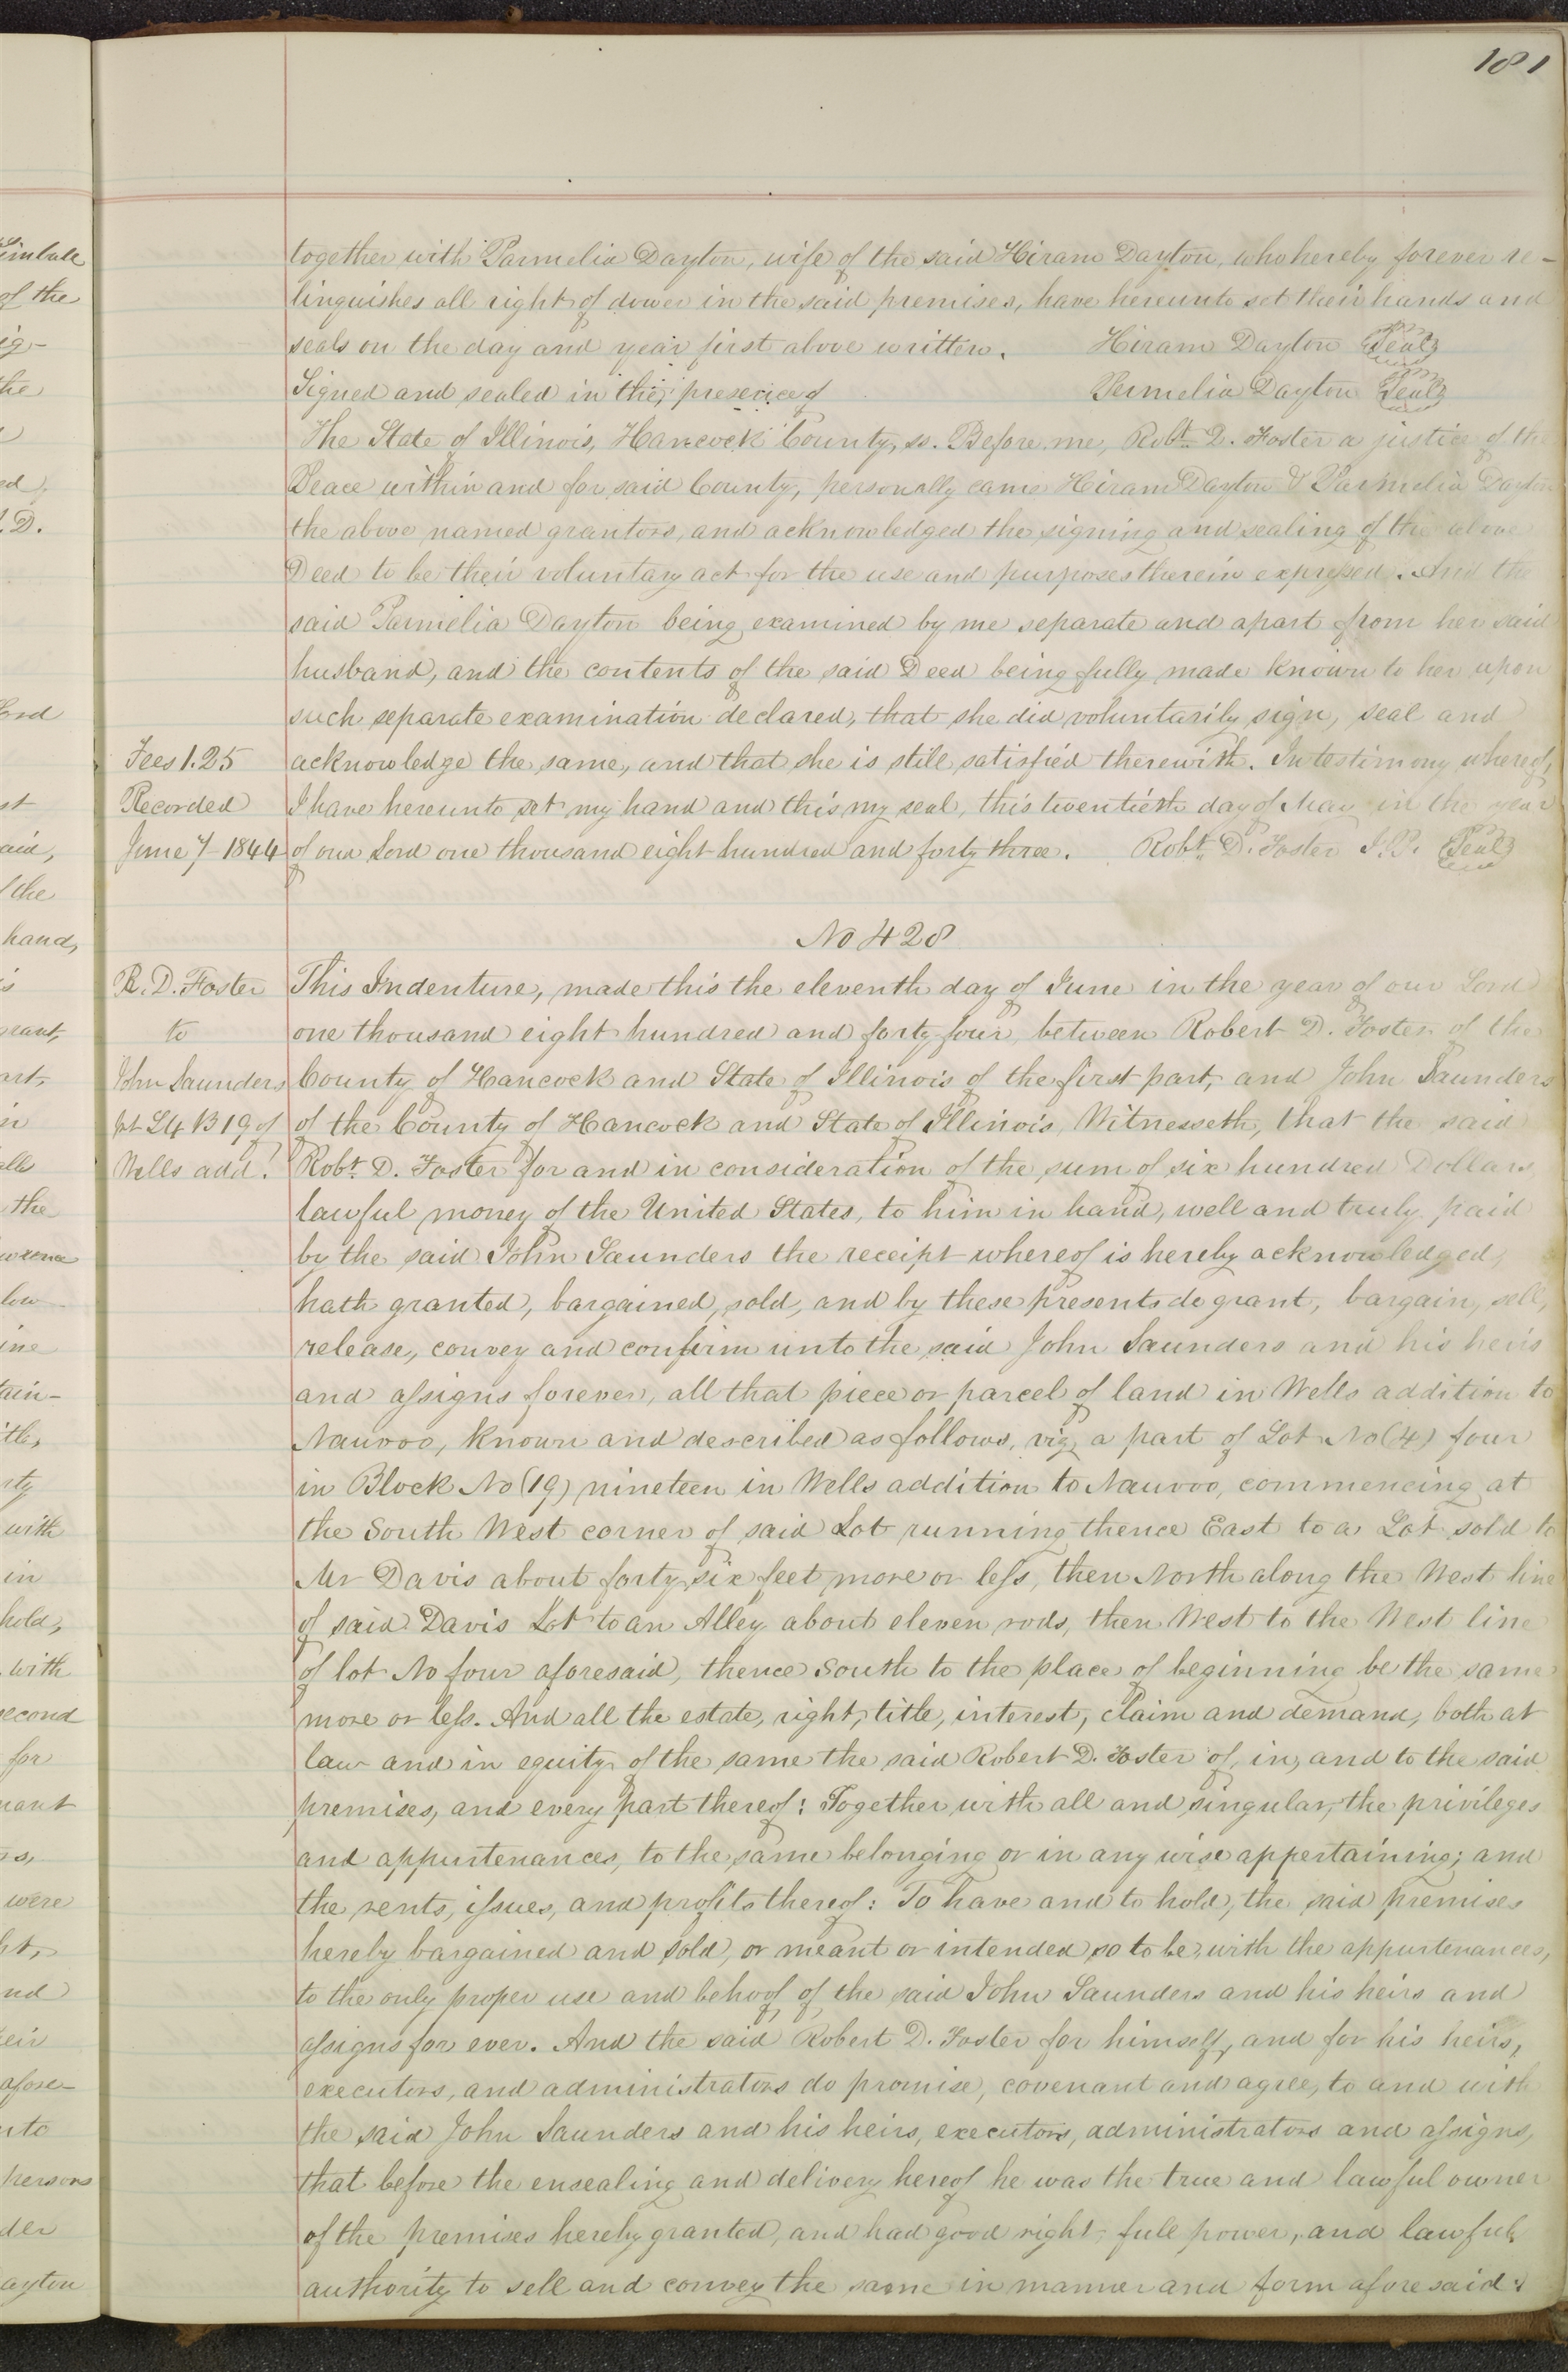 181
together with Parmelia Dayton, wife of the said Hiram Dayton, who hereby forever re-
linquishes all right of dower in the said premises, have hereunto set their hands and
seals on the day and year first above written. Hiram Dayton Seal
Signed and sealed in the presence of Permelia Dayton Seal
The State of Illinois, Hancock County, ss. Before me, Robt. D. Foster a justice of the
Peace within and for said County, personally came Hiram Dayton & Parmelia Dayton
the above named grantors, and acknowledged the signing and sealing of the above
Deed to be their voluntary act for the use and purposes therein expressed. And the
said Parmelia Dayton being examined by me separate and apart from her said
husband, and the contents of the said Deed being fully made known to her upon
such separate examination declared, that she did voluntarily sign, seal and
Fees 1.25 acknowledge the same, and that she is still satisfied therewith. In testimony whereof,
Recorded I have hereunto set my hand and this my seal, this twentieth day of May in the year
June 7 1844 of our Lord one thousand eight hundred and forty three. Robt. D. Foster J.P. Seal
No 428
R. D. Foster This Indenture, made this the eleventh day of June in the year of our Lord
to one thousand eight hundred and forty four, between Robert D. Foster of the
John Saunders County of Hancock and State of Illinois of the first part, and John Saunders
pt L4 B 19 of of the County of Hancock and State of Illinois, Witnesseth, that the said
Wells add. Robt. D. Foster for and in consideration of the sum of six hundred Dollars,
lawful money of the United States, to him in hand, well and truly paid
by the said John Saunders the receipt whereof is hereby acknowledged,
hath granted, bargained, sold, and by these presents do grant, bargain, sell,
release, convey and confirm unto the said John Saunders and his heirs
and assigns forever, all that piece or parcel of land in Wells addition to
Nauvoo, known and described as follows, viz, a part of Lot No (4) four
in Block No (19) nineteen in Wells addition to Nauvoo, commencing at
the South West corner of said Lot running thence East to a Lot sold to
Mr Davis about forty six feet more or less, then North along the West line
of said Davis Lot to an Alley about eleven rods, then West to the West line
of lot No four aforesaid, thence South to the place of beginning be the same
more or less. And all the estate, right, title, interest, claim and demand, both at
law and in equity of the same the said Robert D. Foster of, in, and to the said
premises, and every part thereof: Together with all and singular, the privileges
and appurtenances, to the same belonging or in any wise appertaining; and
the rents, issues, and profits thereof: To have and to hold, the said premises
hereby bargained and sold, or meant or intended so to be, with the appurtenances,
to the only proper use and behoof of the said John Saunders and his heirs and
assigns for ever. And the said Robert D. Foster for himself, and for his heirs,
executors, and administrators do promise, covenant and agree, to and with
the said John Saunders and his heirs, executors, administrators and assigns,
that before the ensealing and delivery hereof he was the true and lawful owner
of the premises hereby granted, and had good right, full power, and lawful
authority to sell and convey the same in manner and form aforesaid.